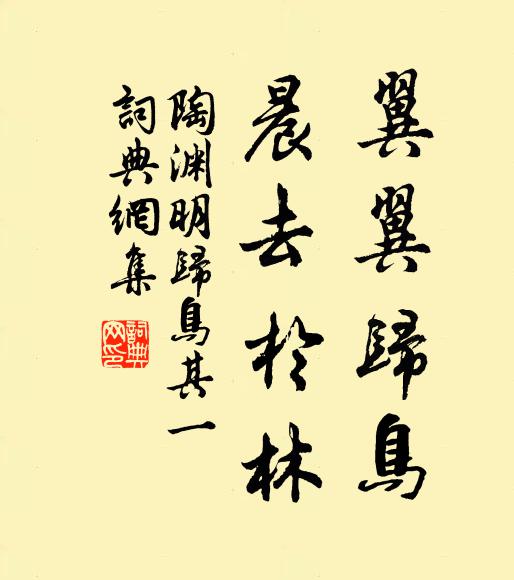 翼翼歸鳥
晨去於林
陶渊明歸鳥其一
詞典網集
詞典网印